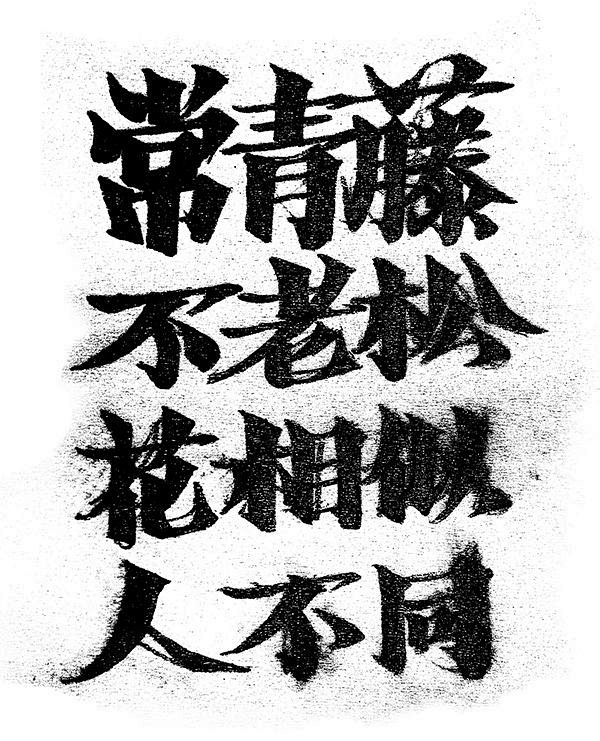 常青藤
不老松
花相似
人不同